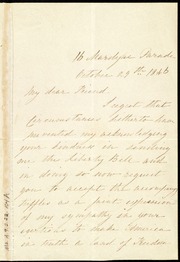 16 Mardyke Parade
October 29th 1846
My dear Friend
I regret that
circumstances hitherto have
prevented my acknowledging
your kindness in sending
me the Liberty Bell and
in doing so now request you
to accept the accompanying
trifles as a poor expression
of my sympathy in your
exertions to make America
in truth a land of Freedom